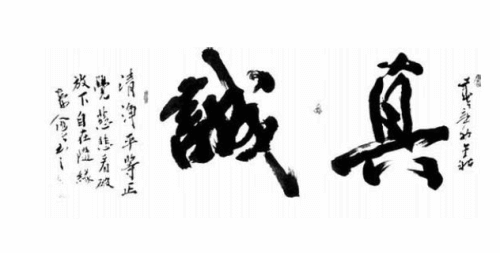 真
誠
清淨平等正
覺慈悲看破
放下自在隨緣